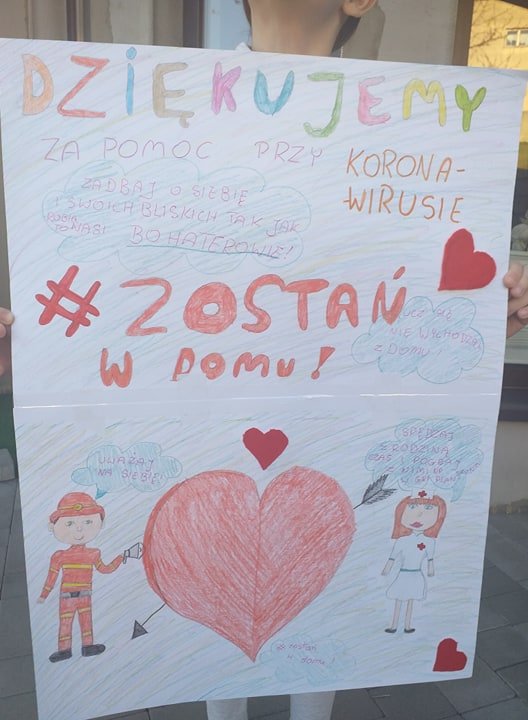 DZIĘKUJEMY
ZA POMOC PRZY
KORONA-
WIRUSIE
ZADBAJ O SIEBIE
I SWOICH BLISKICH TAK JAK
ROBIĄ
TO NASI
BOHATEROWIE!
#ZOSTAŃ
W DOMU!
UCZ SIĘ
NIE WYCHODZĄC
Z DOMU!
UWAŻAJ
NA SIEBIE!
SPĘDZAJ
Z RODZINĄ
CZAS I POGRAJ
Z NIMI
W GRĘ PLAN
# zostań
w domu!